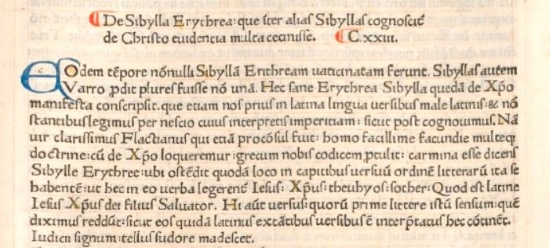 De Sibylla Erythrea: que iter alias Sibyllas cognoscit̃
de Christo euidentia multa cecinisse. C. xxiii.
EOdem tẽpore nõnulli Sibyllã Erithream uaticinatam ferunt. Sibyllas autem
Varro ꝓdit plures fuisse nõ unã. Hec sane Erythrea Sibylla quedã de Xp̃o
manifesta conscripsit. que etiam nos prius in latina lingua uersibus male latinis: & nõ
stantibus legimus per nescio cuius interpretis imperitiam: sicut post cognouimus. Nã
uir clarissimus Flactianus qui etiã procõsul fuit: homo facillime facundie multeq;
doctrine: cũ de Xp̃o loqueremur: grecum nobis codicem ꝓtulit: carmina esse dicens
Sibylle Erythree: ubi ostẽdit quodã loco in capitibus uersuũ ordinẽ litterarũ ita se
habentẽ: ut hec in eo uerba legerent̃ Iesus: Xp̃us: theuhyos: sother: Quod est latine
Iesus Xp̃us dei filius Saluator. Hi aũt uersus: quorũ prime littere istũ sensum: quẽ
diximus reddũt: sicut eos quidã latinus extãtibus uersibus ẽ interp̃tatus hec cõtinẽt.
Iudicii signum: tellus sudore madescet.